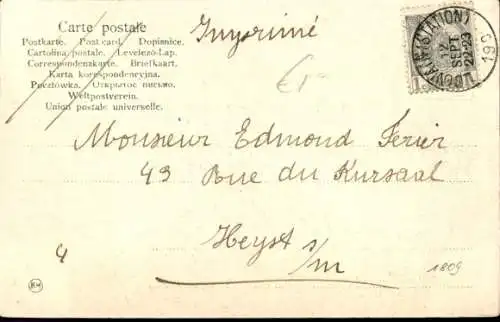 Carte postale
Imprimé
Postkarte. Post card. Dopisnice.
Cartolina postale. Levelező-Lap.
Correspondenzkarte. Briefkaart.
Karta korespondencyjna.
Pocztówka. Открытое письмо.
Weltpostverein.
Union postale universelle.
(STATION)
12
SEPT
22-23
190
Monsieur Edmond Ferier
43 Rue du Kursaal
Heyst s/m
4
1809